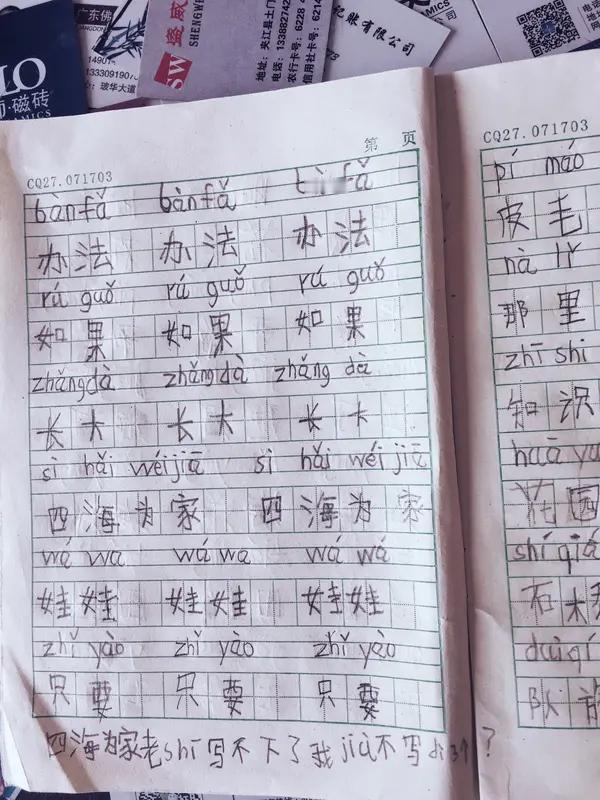 广东佛
14901
1333091907
地址：玻华大道
盛威
SHENGWE
SW
地址：夹江县土门
电话：1338874
农行卡号：6228
信用社卡号：6214
记账有限公司
MICS
LO
·磁砖
AMICS
第 页
CQ27.071703
bànfǎ bànfǎ fǎ
办法 办法 办法
rú guǒ rú guǒ rú guǒ
如果 如果 如果
zhǎngdà zhǎngdà zhǎng dà
长大 长大 长大
sì hǎi wéijiā sì hǎi wéi jiā
四海为家 四海为家
wá wa wá wa wá wá
娃娃 娃娃 娃娃
zhǐ yào zhǐ yào zhǐ yào
只要 只要 只要
四海为家老shī写不下了我jiù不写 ？
CQ27.071703
pí máo
皮毛
nà lǐ
那里
zhī shi
知识
huā yu
花园
shí qiá
石
duì qí
队